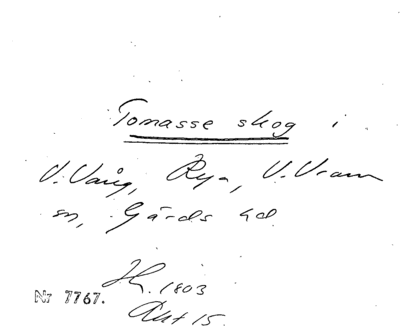 Tomasse skog i
V. Vång, Rya, V. Vram
sn, Gärds hd.
1803
Akt 15.
Nr 7767.